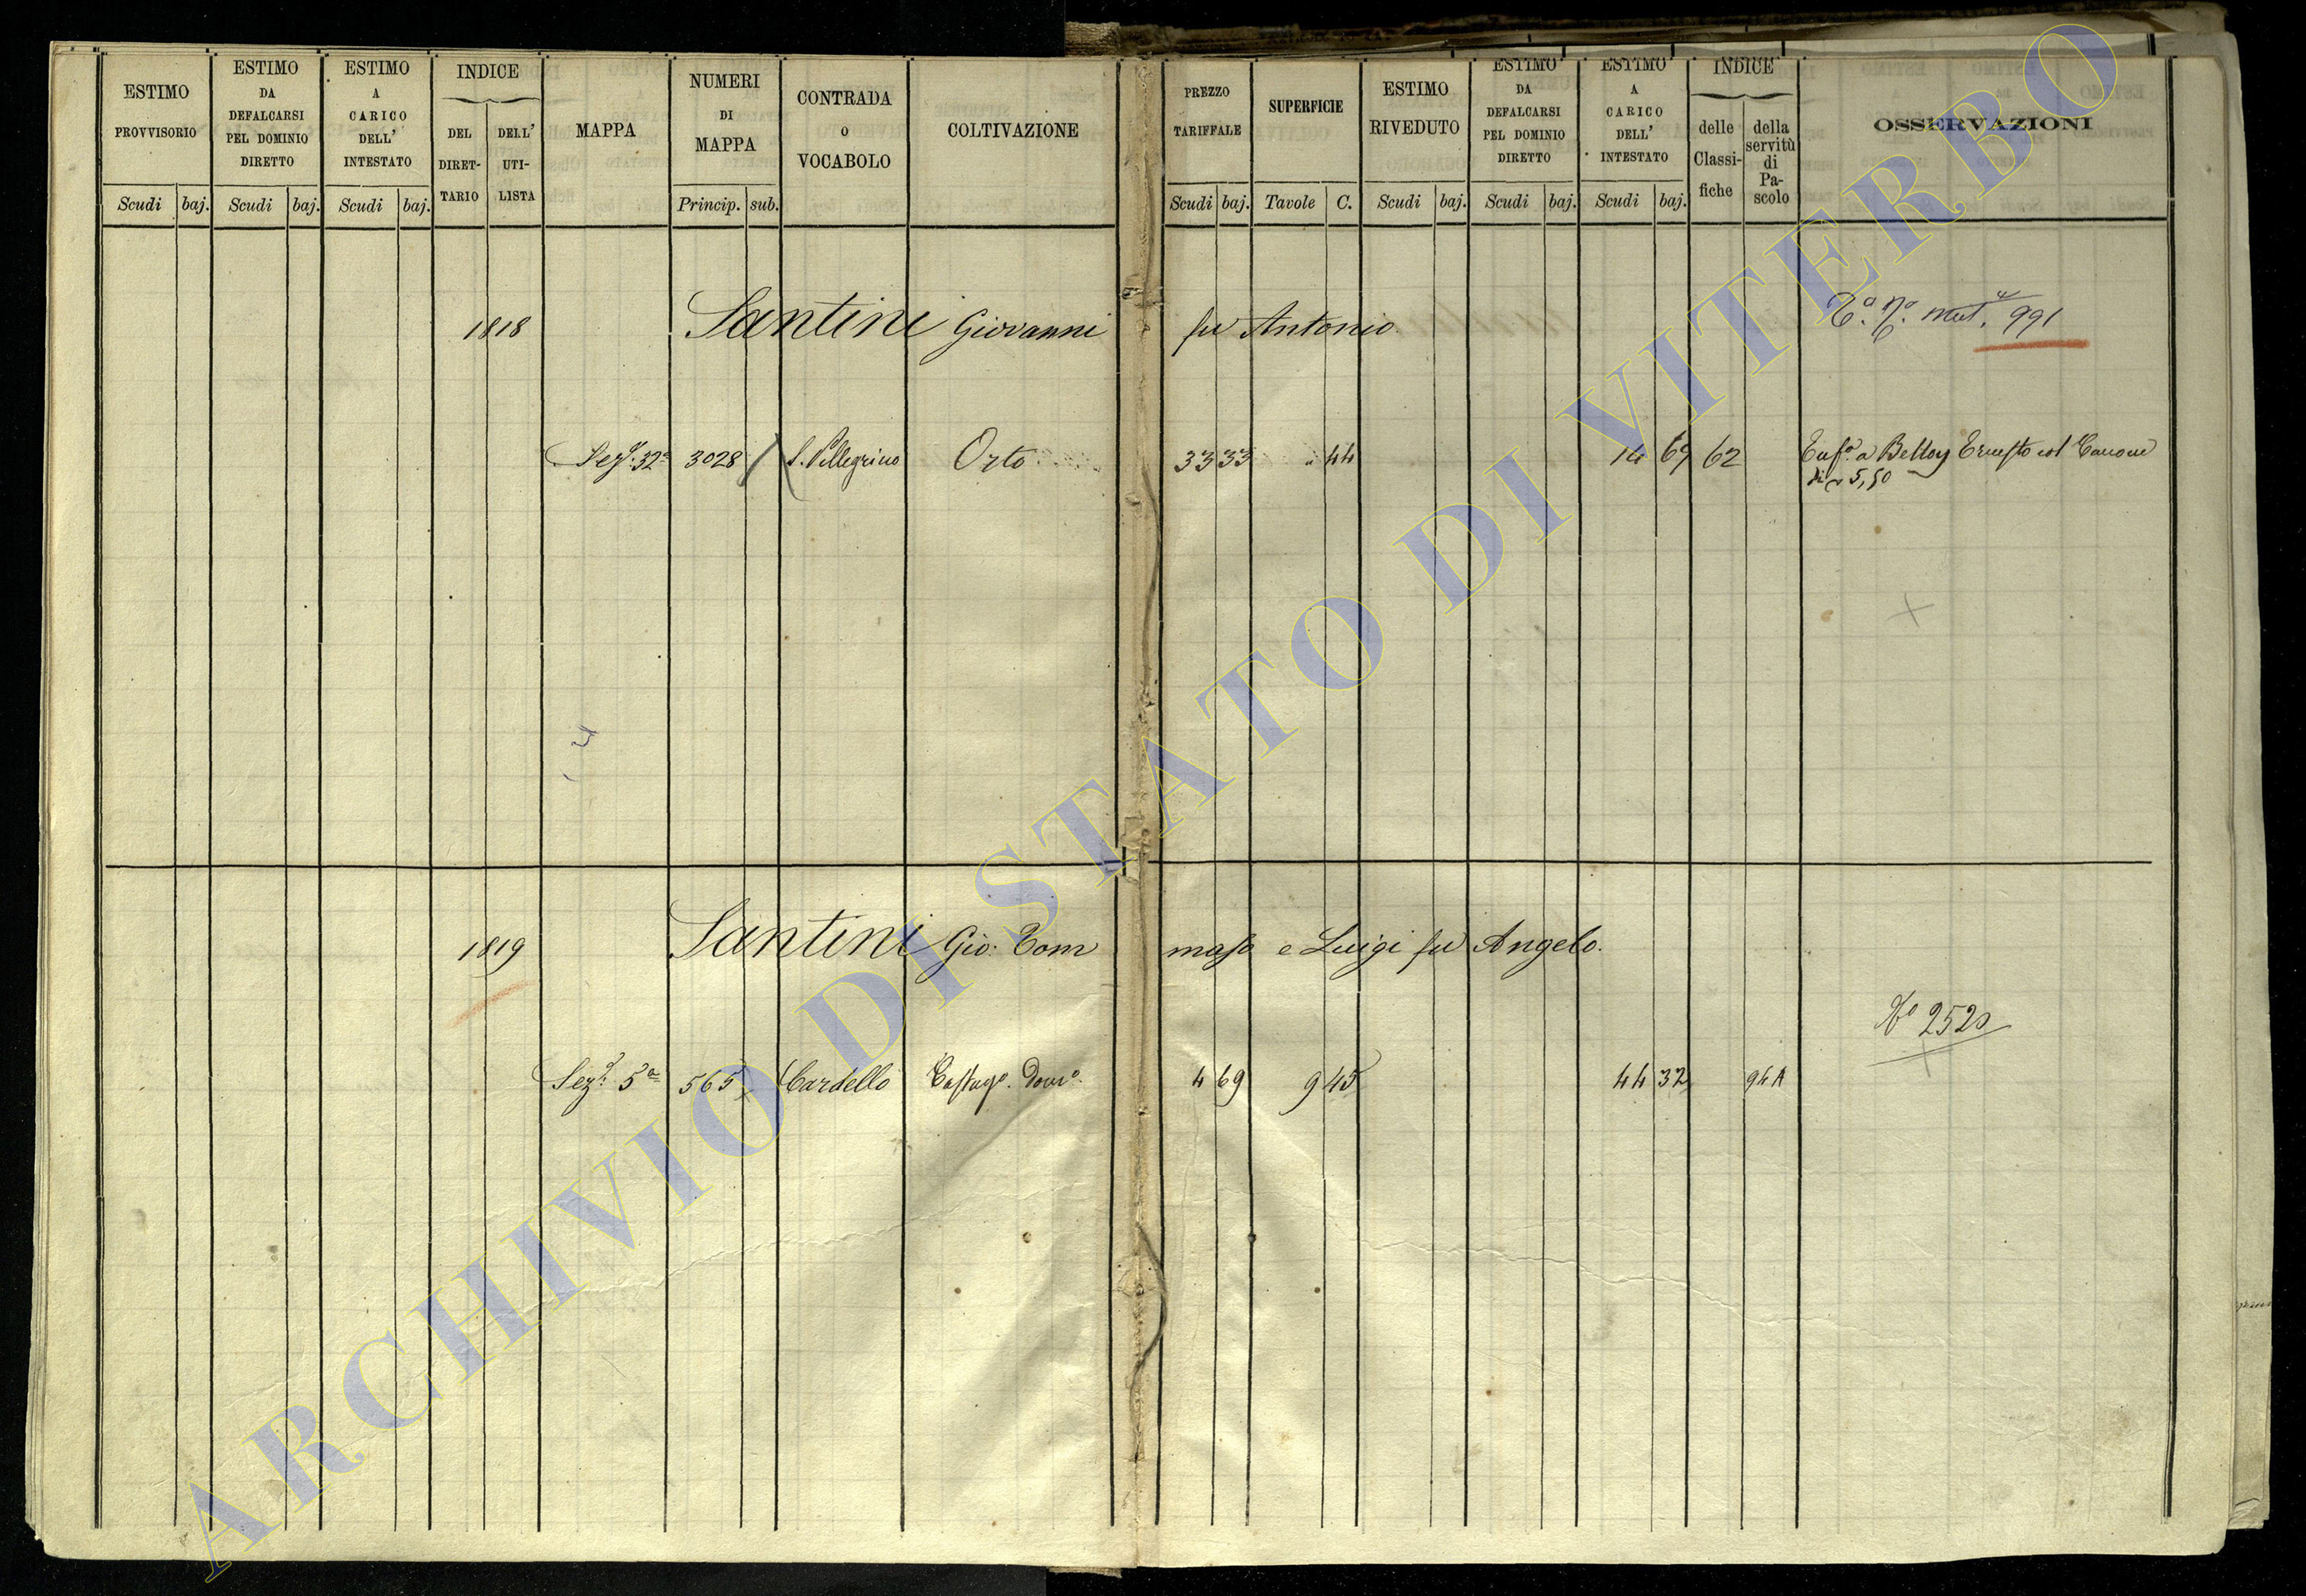 ESTIMO PROVVISORIO
Scudi baj.
ESTIMO DA DEFALCARSI PEL DOMINIO DIRETTO
Scudi baj.
ESTIMO A CARICO DELL' INTESTATO
Scudi baj.
INDICE
DEL DIRET-TARIO
DELL' UTI-LISTA
MAPPA
NUMERI DI MAPPA
Princip. sub.
CONTRADA o VOCABOLO
COLTIVAZIONE
PREZZO TARIFFALE
Scudi baj.
SUPERFICIE
Tavole C.
ESTIMO RIVEDUTO
Scudi baj.
ESTIMO DA DEFALCARSI PEL DOMINIO DIRETTO
Scudi baj.
ESTIMO A CARICO DELL' INTESTATO
Scudi baj.
INDICE
delle Classi-fiche
della servitù di Pa-scolo
OSSERVAZIONI
1818 Santini Giovanni fu Antonio
991
Sez. 32a 3028 S. Pellegrino Orto 33 33 " 44 14 69 62
Ernesto col Canone
di 5,50
1819 Santini Gio: Tommaso e Luigi fu Angelo.
No 2520
Sez. 5a 565 Cardello Castago. Domo. 4 69 9 45 44 32 94A
ARCHIVIO DI STATO DI VITERBO